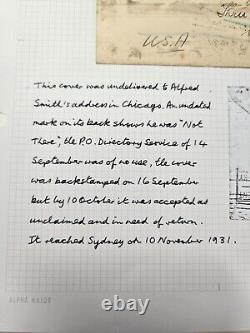 Thru
U.S.A
This cover was undelivered to Alfred
Smith's address in Chicago. An undated
mark on its back shows he was "Not
There", the P.O. Directory Service of 14
September was of no use, the cover
was backstamped on 16 September
but by 10 October it was accepted as
unclaimed and in need of return.
It reached Sydney on 10 November 1931.
ALPHA MAJOR